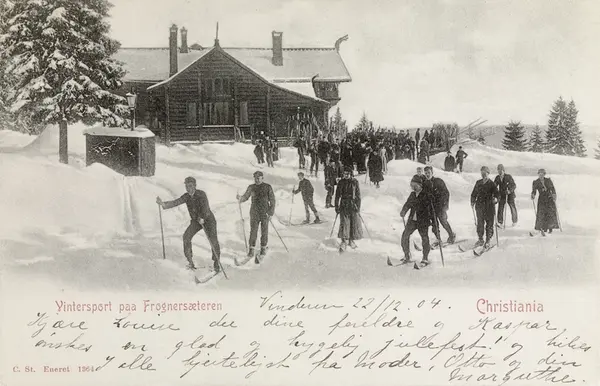 Vintersport paa Frognersæteren
Vinderen 22/12. 04.
Christiania
Kjære Louise du dine foreldre og Kaspar,
ønskes en glad og hyggelig julefest! og hilses
I alle hjerteligst fra Moder, Otto og din
Margrethe.
C. St. Eneret 1364